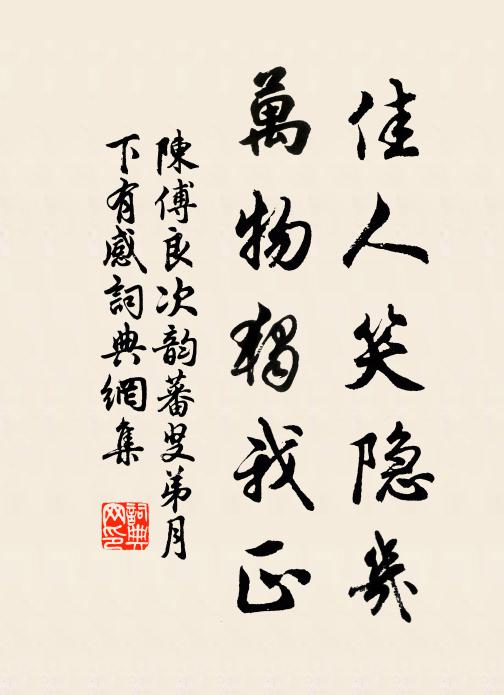 佳人笑隐几
萬物獨我正
陳傅良次韵蕃叟弟月
下有感詞典網集
詞典
网印